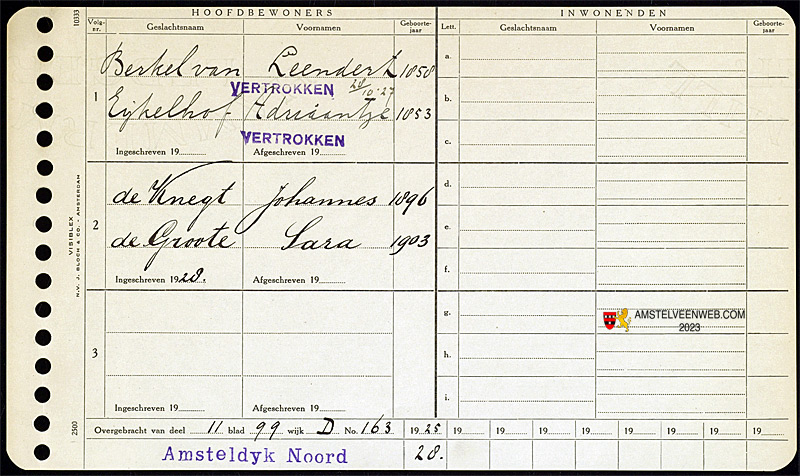 HOOFDBEWONERS
INWONENDEN
Volg-nr.
Geslachtsnaam
Voornamen
Geboorte-jaar
Lett.
Geslachtsnaam
Voornamen
Geboorte-jaar
10333
1
Berkel van Leendert 1858
VERTROKKEN 20/10-27
Eijkelhof Adriaantje 1853
VERTROKKEN
Ingeschreven 19 Afgeschreven 19
2
de Knegt Johannes 1896
de Groote Sara 1903
Ingeschreven 1928. Afgeschreven 19
3
Ingeschreven 19 Afgeschreven 19
a.
b.
c.
d.
e.
f.
g.
h.
i.
AMSTELVEENWEB.COM
2023
VISIBLEX
N.V. J. BLOCH & CO. - AMSTERDAM
2500
Overgebracht van deel 11 blad 99 wijk D No. 163 1925 19 19 19 19 19 19 19 19
Amsteldyk Noord 28.